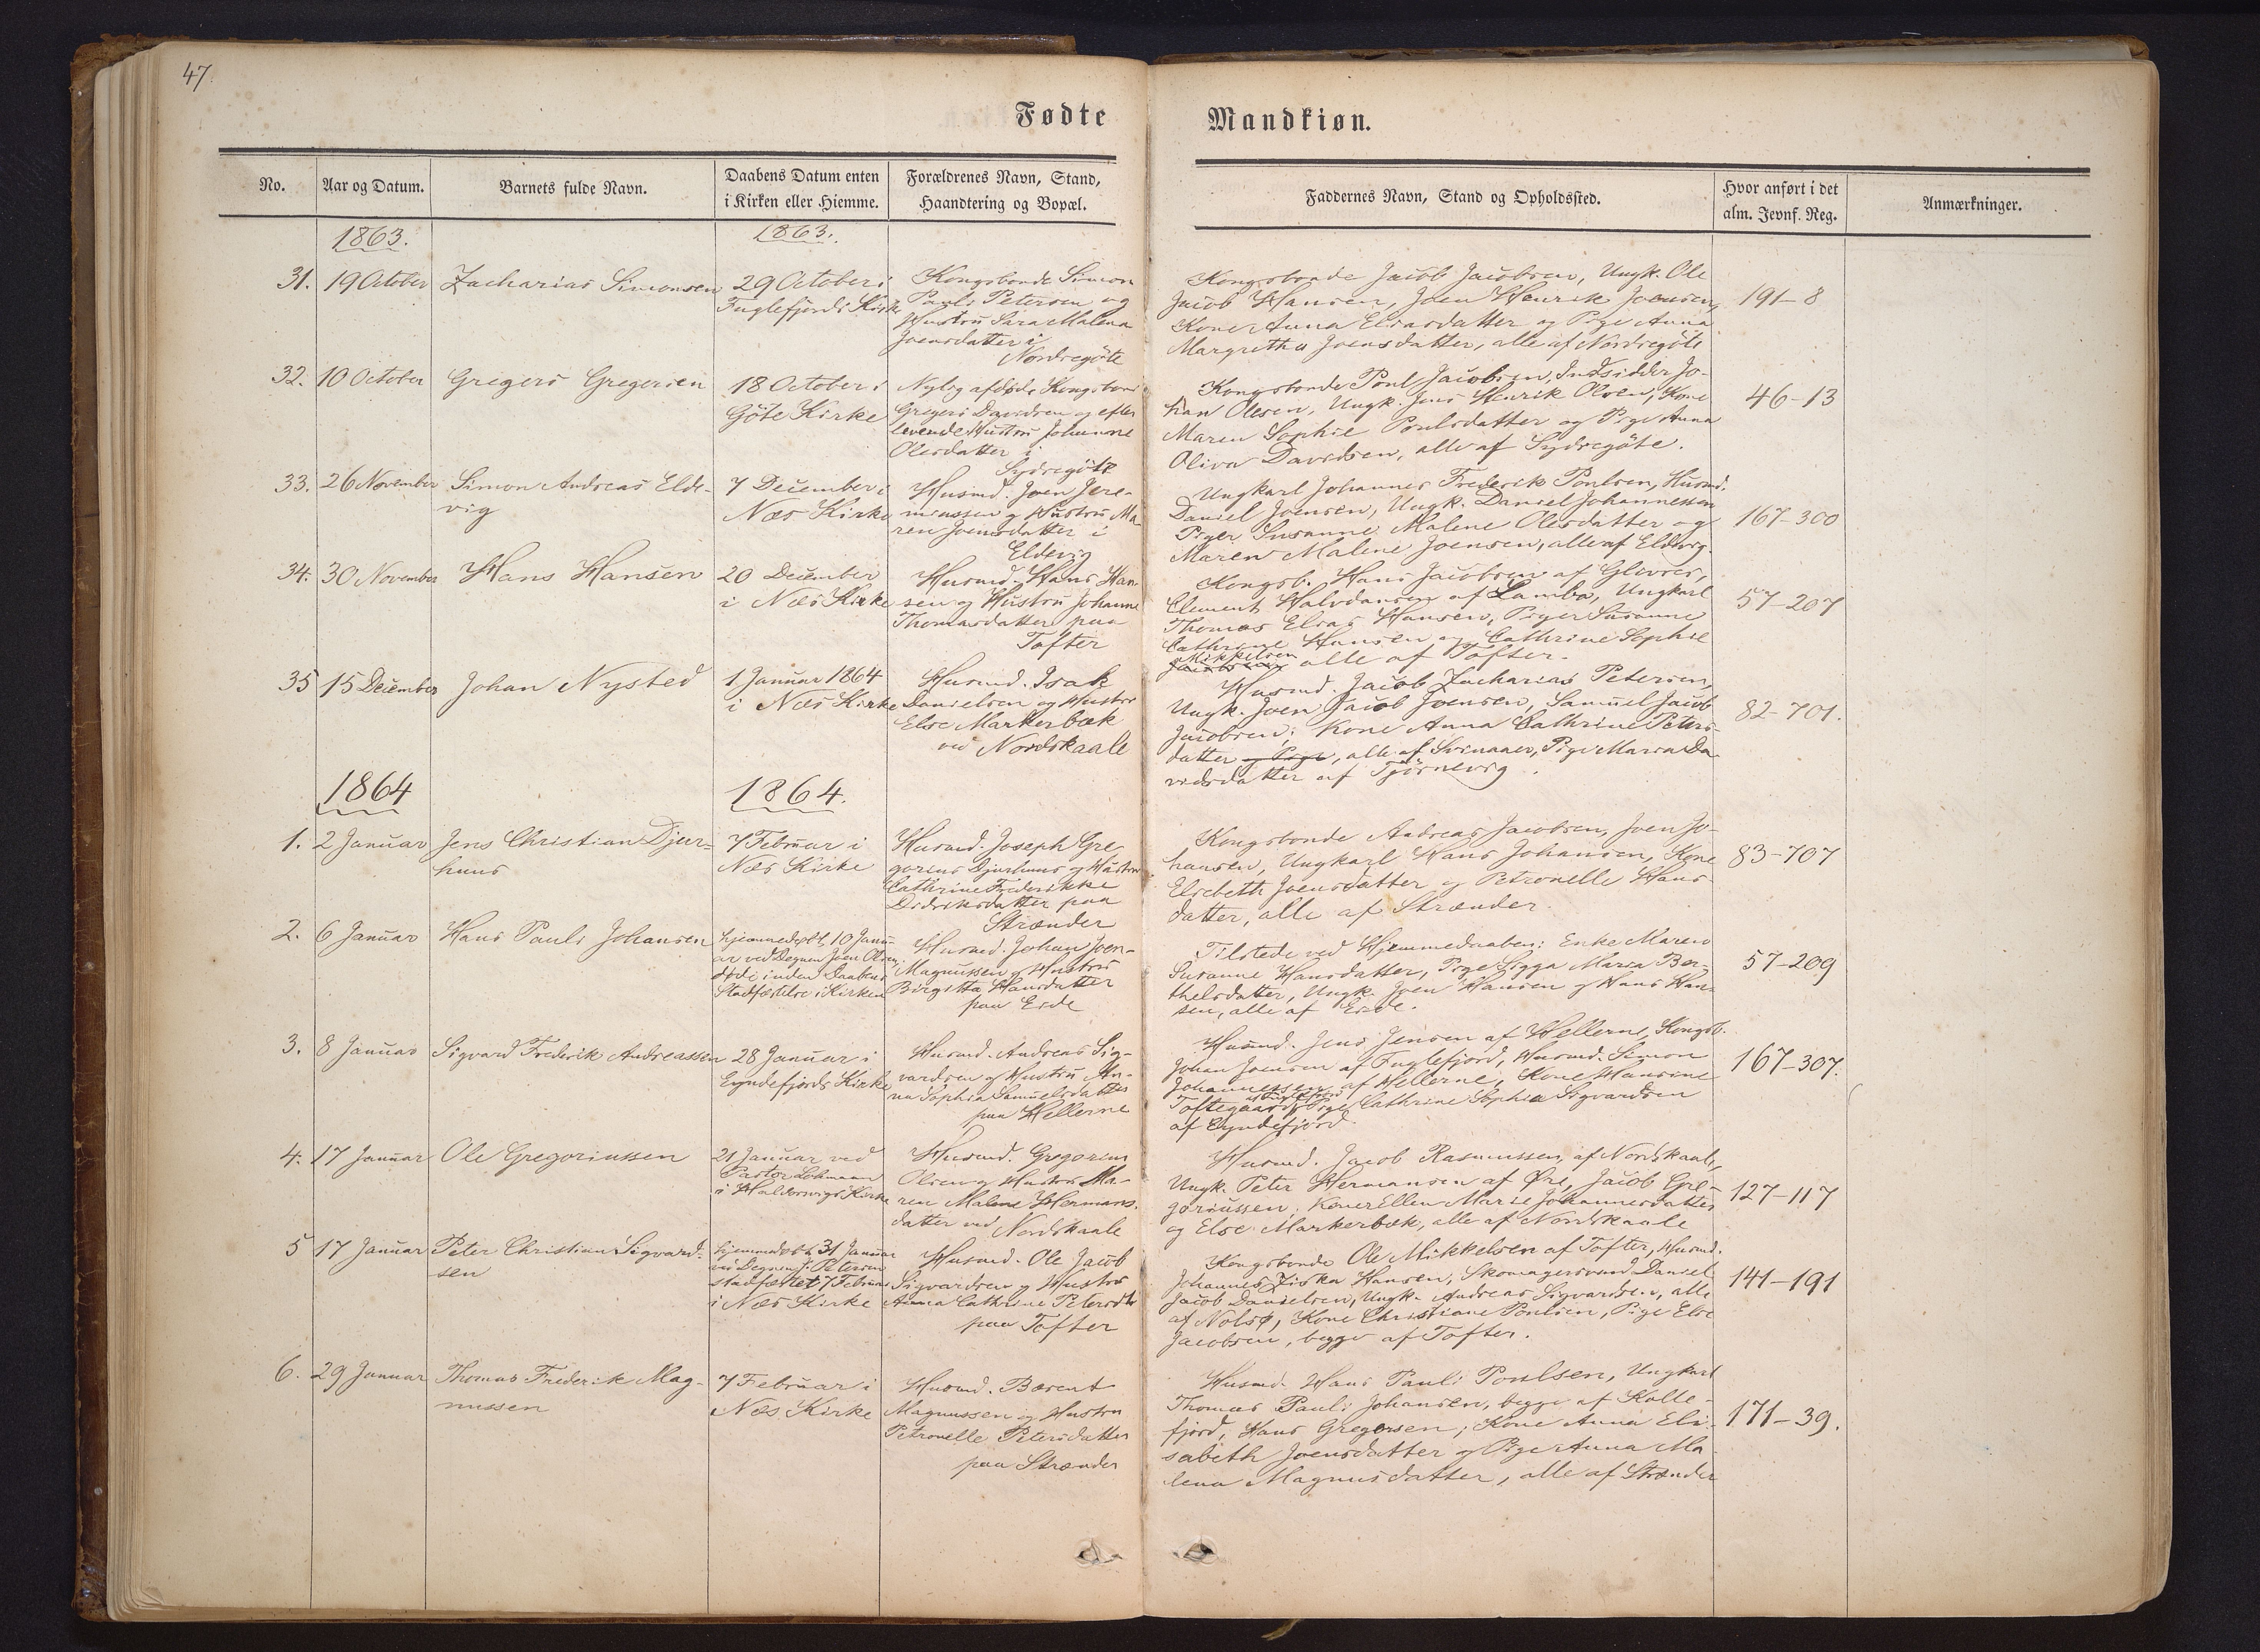 47.
Fødte
Mandkiøn.
No.
Aar og Datum.
Barnets fulde Navn.
Daabens Datum enten
i Kirken eller Hiemme.
Forældrenes Navn, Stand,
Haandtering og Bopæl.
Faddernes Navn, Stand og Opholdssted.
Hvor anført i det
alm. Jevnf. Reg.
Anmærkninger.
1863.
1863.
31.
19 October
Zacharias Simonsen
29 October i
Fuglefjords Kirke
Kongsbonde Simon
Pauli Petersen og
Hustru Sara Malena
Joensdatter i
Nordregöte
Kongsbonde Jacob Jacobsen, Ungk. Ole
Jacob Hansen, Joen Henrik Joensen,
Koner Anna Eliasdatter og Pige Anna
Margretha Joensdatter, alle af Nordregöte
191-8
32.
10 October
Gregers Gregersen
18 October i
Göte Kirke
Nylig afdøde Kongsbonde
Gregers Davidsen og efter
levende Hustru Johanne
Olesdatter i
Sydregöte
Kongsbonde Poul Jacobsen, Indsidder Jo-
han Olesen, Ungk. Jens Henrik Olsen, Kone
Maren Sophie Poulsdatter og Pige Anna
Oliva Davidsen, alle af Sydregöte.
46-13
33.
26 November
Simon Andreas Elde-
vig
7 December i
Næs Kirke
Husmd. Joen Jere-
miassen og Hustru Ma
ren Joensdatter i
Eldevig
Ungkarl Johannes Frederik Poulsen, Husmd.
Daniel Joensen, Ungk. Daniel Johannessen
Piger Susanne Malene Olesdatter og
Maren Malene Joensen, alle af Eldevig.
167-300
34.
30 November
Hans Hansen
20 December
i Næs Kirke
Husmd. Hans Han-
sen og Hustru Johanne
Thomasdatter paa
Tofter
Kongsb. Hans Jacobsen af Glivres,
Clement Halvdansen af Lamba, Ungkarl
Thomas Elias Hansen, Piger Susanne
Cathrine Hansen og Cathrine Sophie
Mikkelsen
Jacobsen alle af Tofter.
57-207
35
15 December
Johan Nysted
1 Januar 1864
i Næs Kirke
Husmd. Isak
Danielsen og Hustru
Else Markerbæk
ved Nordskaale
Husmd. Jacob Zacharias Petersen,
Ungk. Joen Jacob Joensen, Samuel Jacob
Jacobsen; Kone Anna Cathrine Peters-
datter og Pige, alle af Svinaaer, Pige Maria Da
vidsdatter af Tjörnevig.
82-701.
1864
1864.
1.
2 Januar
Jens Christian Djur-
huus
7 Februar i
Næs Kirke
Husmd. Joseph Gre
gorius Djurhuus og Hustru
Cathrine Frederikke
Didriksdatter paa
Strænder
Kongsbonde Andreas Jacobsen, Joen Jo-
hansen, Ungkarl Hans Johansen, Kone
Elsebeth Joensdatter og Petronelle Hans-
datter, alle af Strænder.
83-707
2.
6 Januar
Hans Pauli Johansen
hjemmedøbt 10 Janu-
ar ved Degnen Joen Olsen,
døde inden Daabens
Stadfæstelse i Kirken
Husmd. Johan Joen-
Magnussen og Hustru
Birgitta Hansdatter
paa Eide
Tilstede ved Hjemmedaaben: Enke Maren
Susanne Hansdatter, Pige Sigga Maria Ber-
thelsdatter, Ungk. Joen Hansen og Hans Han-
sen, alle af Eide.
57-209
3.
8 Januar
Sigvard Frederik Andreassen
28 Januar i
Eyndefjords Kirke
Husmd. Andreas Sig-
vardsen og Hustru An-
na Sophia Samuelsdatter
paa Hellerne
Husmd. Jens Jensen af Hellerne, Kongsb.
Johan Joensen af Fuglefjord, Husmd. Simon
Johannessen af Hellerne, Kone Hansine
af Fuglefjord
Toftegaard, Pige Cathrine Sophia Sigvardsen
af Eyndefjord.
167-307.
4.
17 Januar
Ole Gregoriussen
21 Januar ved
Pastor Lohmann
i Haldersvigs Kirke
Husmd. Gregorius
Olsen og Hustru Ma-
ren Malene Hermans-
datter ved Nordskaale
Husmd. Jacob Rasmussen, af Nordskaale,
Ungk. Peter Hermansen af Øre, Jacob Gre-
goriussen, Koner Ellen Marie Johannesdatter
og Else Markerbæk, alle af Nordskaale
127-117
5
17 Januar
Peter Christian Sigvard-
sen
hjemmedøbt 31 Januar
ved Degnen J. Petersen
stadfæstet 7 Februar
i Næs Kirke
Husmd. Ole Jacob
Sigvardsen og Hustru
Anna Cathrine Petersdtr
paa Tofter
Kongsbonde Ole Mikkelsen af Tofter, Husmd.
Johannes Ziska Hansen, Skomagersvend Daniel
Jacob Danielsen, Ungk. Andreas Sigvardsen, alle
af Nolsø, Kone Christiane Poulsen, Pige Else
Jacobsen, begge af Tofter.
141-191
6.
29 Januar
Thomas Frederik Mag-
nussen
7 Februar i
Næs Kirke
Husmd. Berent
Magnussen og Hustru
Petronelle Petersdatter
paa Strænder
Husmd. Hans Pauli Poulsen, Ungkarl
Thomas Pauli Johansen, begge af Kolle-
fjord, Hans Gregersen; Kone Anna Eli-
sabeth Joensdatter og Pige Anna Ma-
lena Magnusdatter, alle af Strænder
171-39.